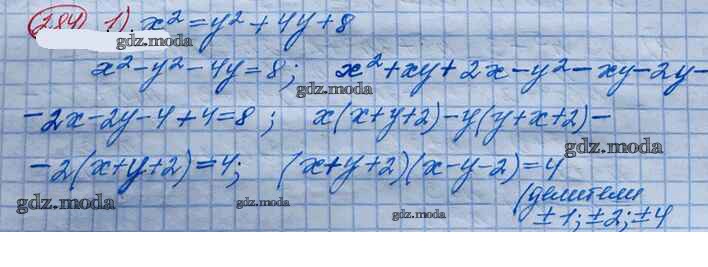 284. 1). x² = y² + 4y + 8
gdz.moda
x² - y² - 4y = 8; x² + xy + 2x - y² - xy - 2y -
gdz.moda gdz.moda
- 2x - 2y - 4 + 4 = 8; x(x+y+2) - y(y+x+2) -
gdz.moda
- 2(x+y+2) = 4; (x+y+2)(x-y-2) = 4
gdz.moda gdz.moda gdz.moda
(делители
± 1; ± 2; ± 4